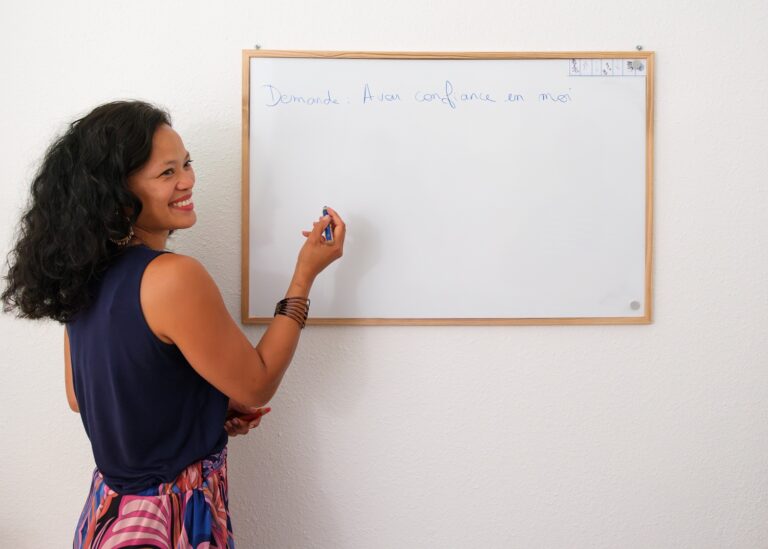 Demande : Avoir confiance en moi